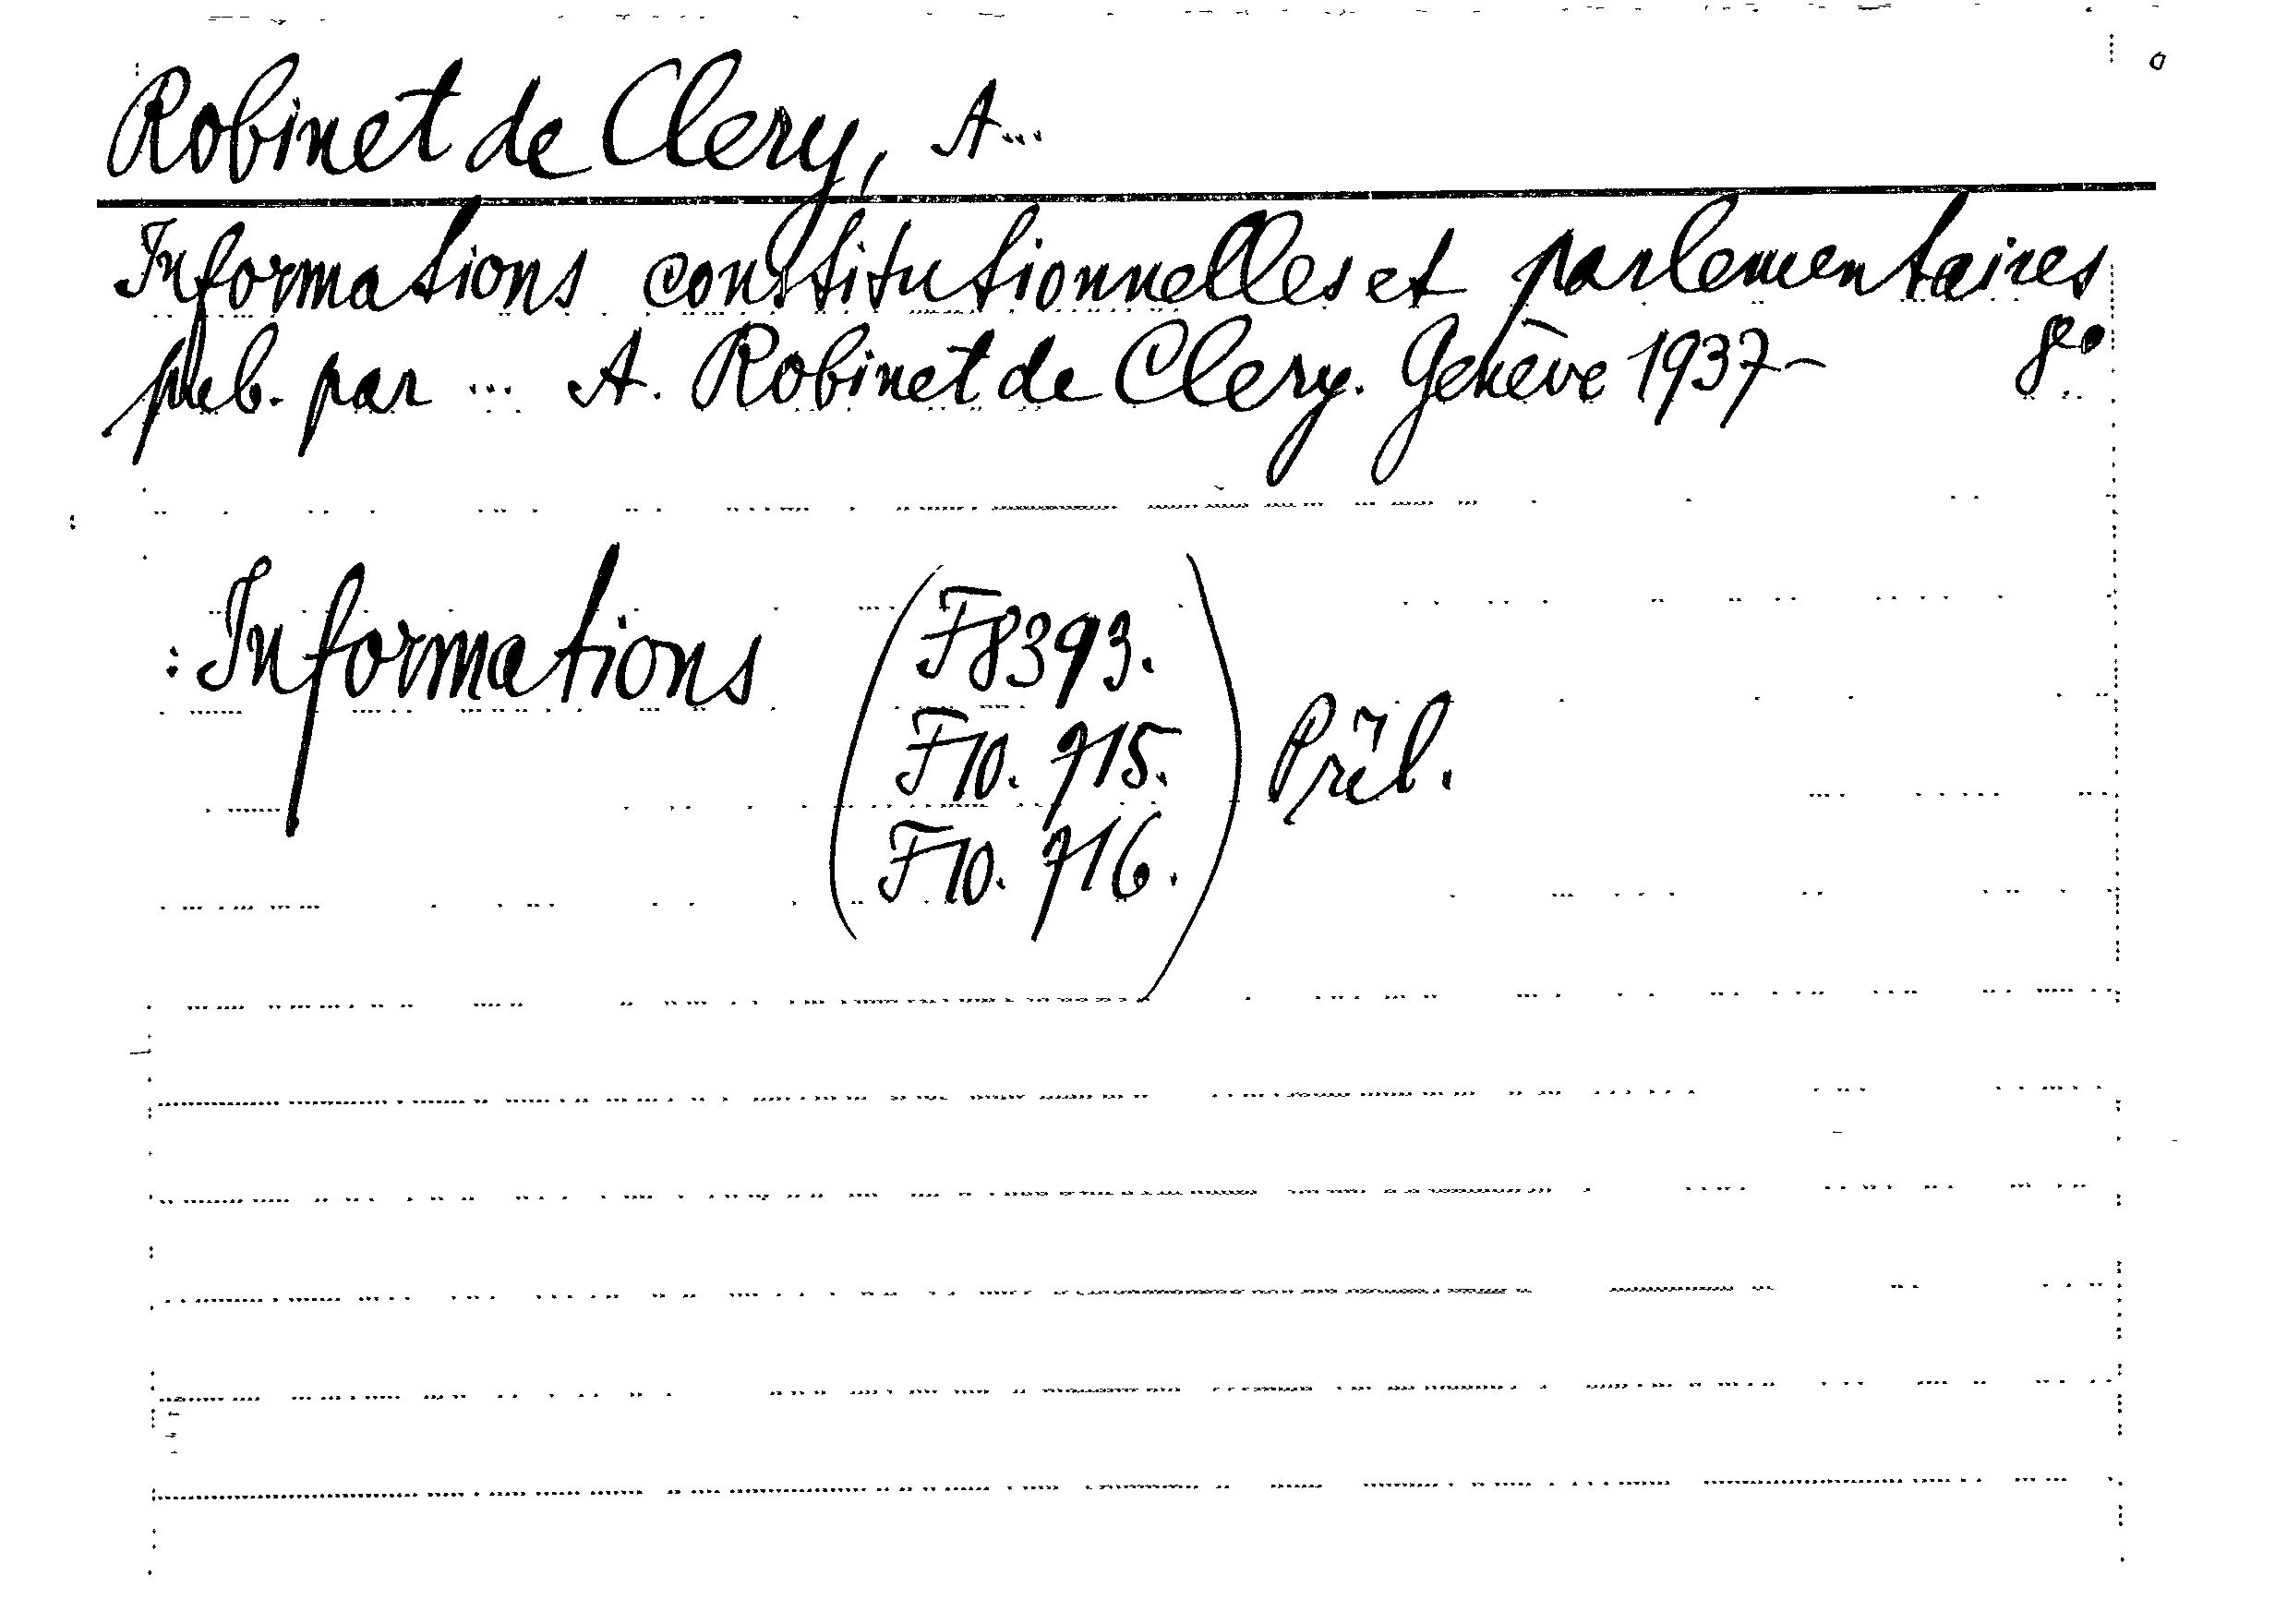 Robinet de Clery, A...
Informations constitutionnelles et parlementaires
pub. par ... A. Robinet de Clery. Genève 1937- 8°
: Informations (F8393.
F10.715.) Präl.
F10.716.